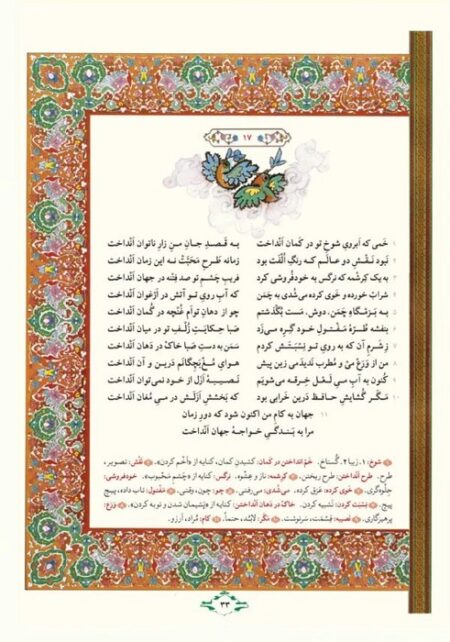 ۱۷
۱ خَمی که اَبرویِ شوخِ تو در کَمان اَنْداخت به قَصدِ جانِ مَنِ زارِ ناتوان اَنْداخت
نَبود نَقْشِ دو عالَم که رنگِ اُلْفَت بود زَمانه طَرحِ مَحَبَّت نه این زمان اَنْداخت
۳ به یک کِرِشمه که نَرگس به خودفُروشی کرد فَریبِ چشمِ تو صد فِتنه در جهان اَنْداخت
شرابْ خورده و خوی کرده می‌شُدی به چَمن که آبِ رویِ تو آتش در اَرْغَوان اَنْداخت
۵ به بَزمگاهِ چَمن، دوش، مَست بُگْذَشتم چو از دهانِ تواَم غُنْچه در گُمان اَنْداخت
بنفشه طُرّهٔ مَفْتولِ خود گِرِه می‌زد صَبا حِکایَتِ زُلْفِ تو در میان اَنْداخت
۷ ز شَرمِ آن که به رویِ تو نِسْبَتَش کردم سَمَن به دستِ صَبا خاک در دَهان اَنْداخت
من از وَرَع مِیْ و مُطرب نَدیدَمی زین پیش هوایِ مُغْ‌بَچگانَم دَرین و آن اَنْداخت
۹ کُنون به آبِ میِ لَعْل خِرقه می‌شویَم نَصیبهٔ اَزَل از خود نمی‌توان اَنْداخت
۱۰ مَگَر گُشایشِ حافظ دَرین خَرابی بود که بَخْشِشِ اَزَلَش در میِ مُغان اَنْداخت
۱۱ جهان به کامِ من اکنون شود که دورِ زمان
مرا به بَندگیِ خواجهٔ جهان اَنْداخت
شوخ: ۱. زیبا ۲. گُستاخ. خَم اَنداختن در کَمان: کشیدنِ کمان، کنایه از «اَخْم کردن». نَقْش: تصویر،
طرح. طرح اَنداختن: طرح ریختن. کِرِشمه: ناز و عِشوه. نرگس: کنایه از «چشمِ محبوب». خودفروشی:
جلوه‌گری. خوی کرده: عَرَق کرده. می‌شدی: می‌رفتی. چو: چون، وقتی. مَفْتول: تاب داده، پیچ
پیچ. نِسْبَت کردن: تَشبیه کردن. خاک در دَهان اَنْداختن: کنایه از «پَشیمان شدن و توبه کردن». وَرَع:
پرهیزگاری. نَصیبه: قِسْمَت، سَرنوشت. مَگَر: لابُد، حتماً. کام: مُراد، آرزو.
۳۳